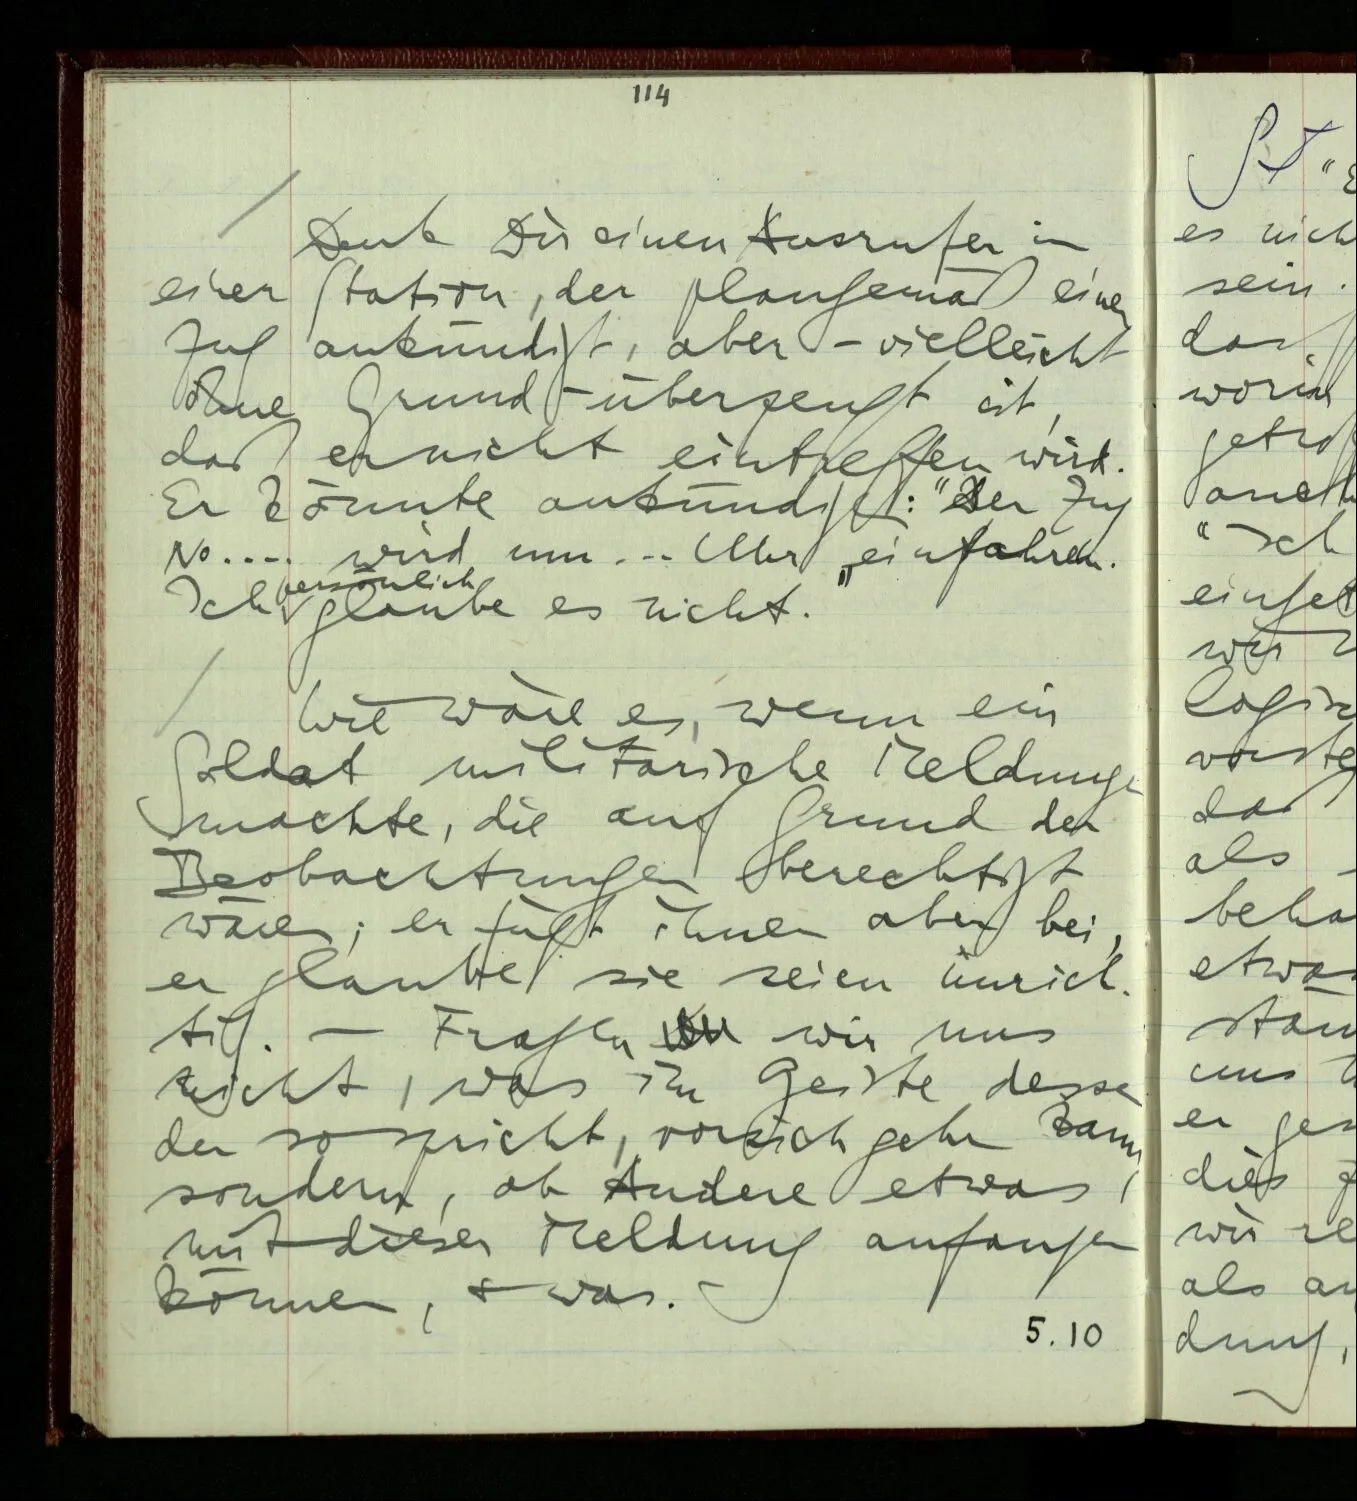 114
/ Denk Dir einen Ausrufer in
einer Station, der plangemäß einen
Zug ankündigt, aber – vielleicht
ohne Grund – überzeugt ist,
daß er nicht eintreffen wird.
Er könnte ankündigen: "Der Zug
No.... wird um ... Uhr einfahren.
Ich persönlich glaube es nicht."
/ Wie wäre es, wenn ein
Soldat militärische Meldungen
machte, die auf Grund der
Beobachtungen berechtigt
wären; er fügt ihnen aber bei,
er glaube sie seien unrich-
tig. – Fragen wir uns
nicht, was im Geiste dessen
der so spricht, vorsichgehn kann,
sondern, ob Andere etwas
mit dieser Meldung anfangen
können, & was. –
5.10
es nich
sein.
daß
worin
als
etwas
uns
er
dies
wir
als